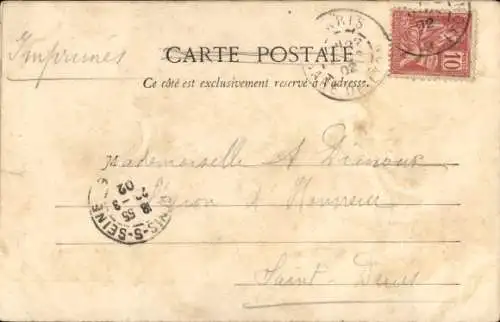 Imprimés
CARTE POSTALE
Ce côté est exclusivement reservé à l'adresse.
PARIS
02
10
Mademoiselle A
Légion d'Honneur
02
PARIS-S-SEINE
Saint-Denis